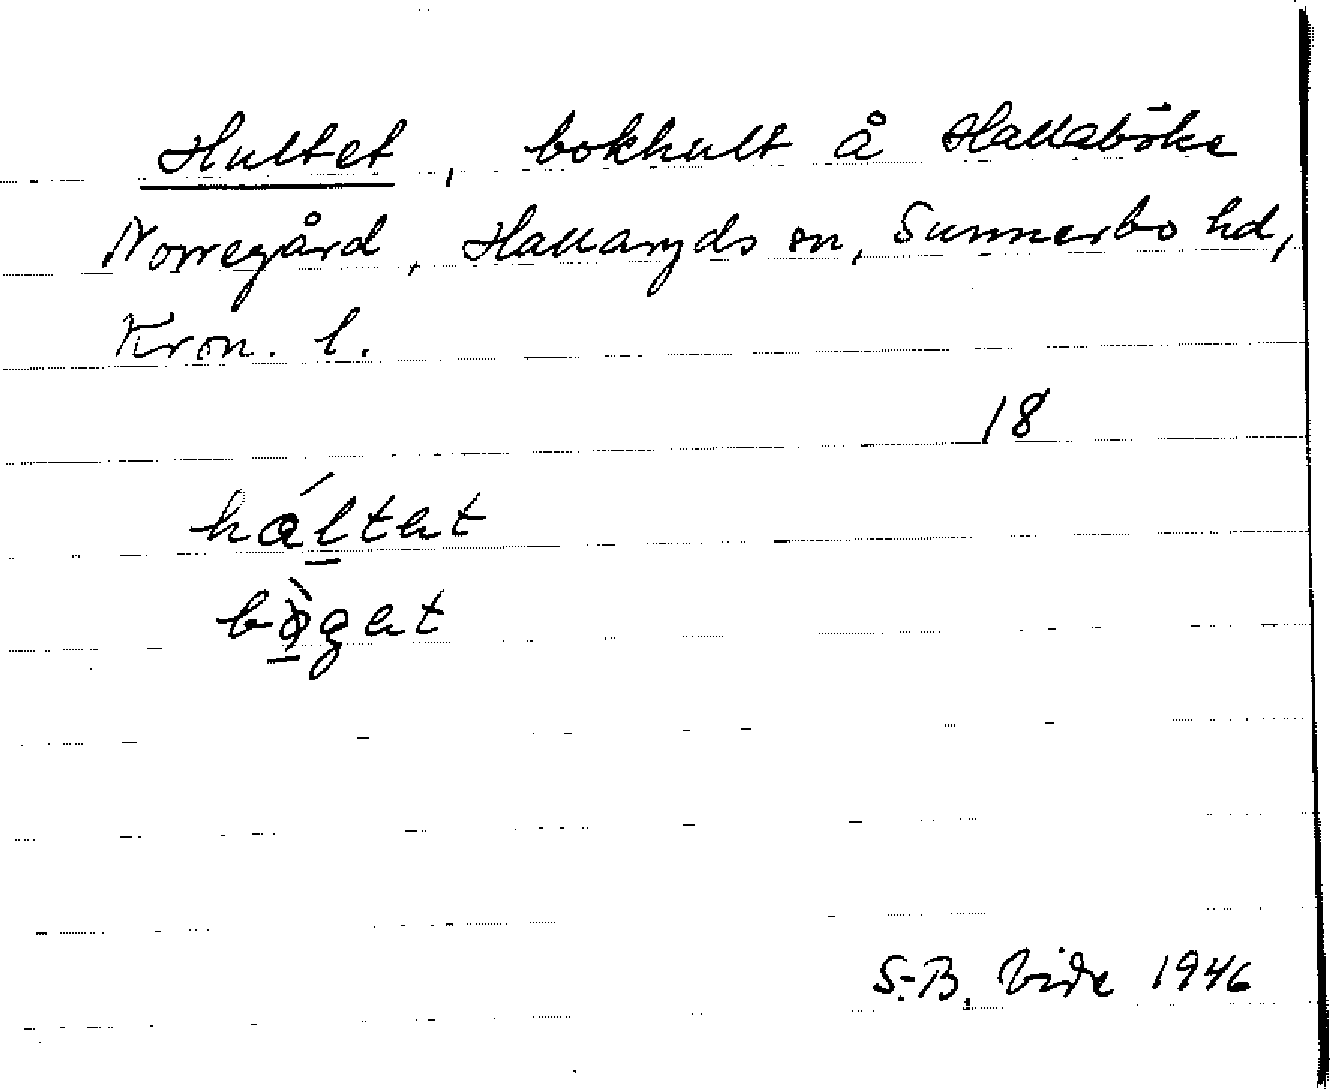 Hultet, bokhult å Hallaböke
Norregård, Hallaryds sn, Sunnerbo hd,
Kron. l.
18
háltet
bø̀get
S.-B. Vide 1946